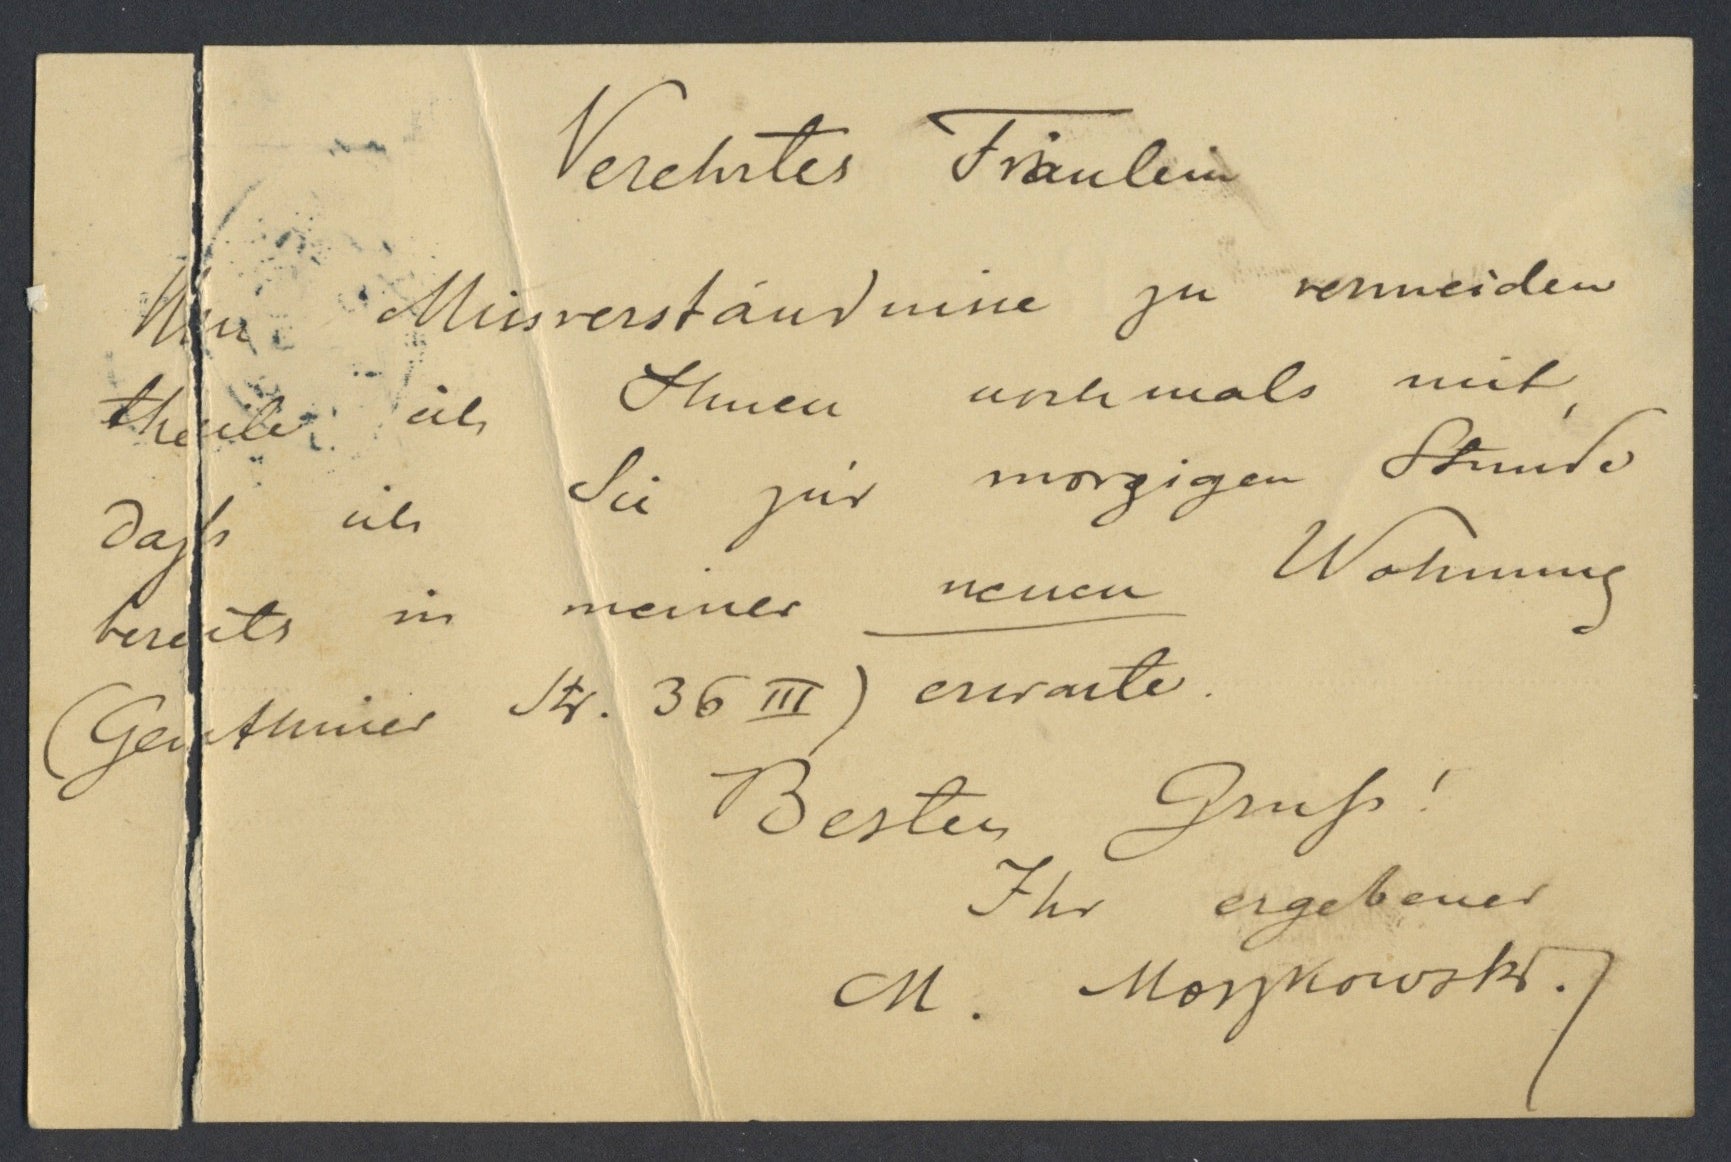 Verehrtes Fräulein
Um Missverständnisse zu vermeiden
theile ich Ihnen nochmals mit,
daß ich Sie zur morgigen Stunde
bereits in meiner neuen Wohnung
(Genthiner Str. 36 III) erwarte.
Besten Gruß!
Ihr ergebener
M. Moszkowski.